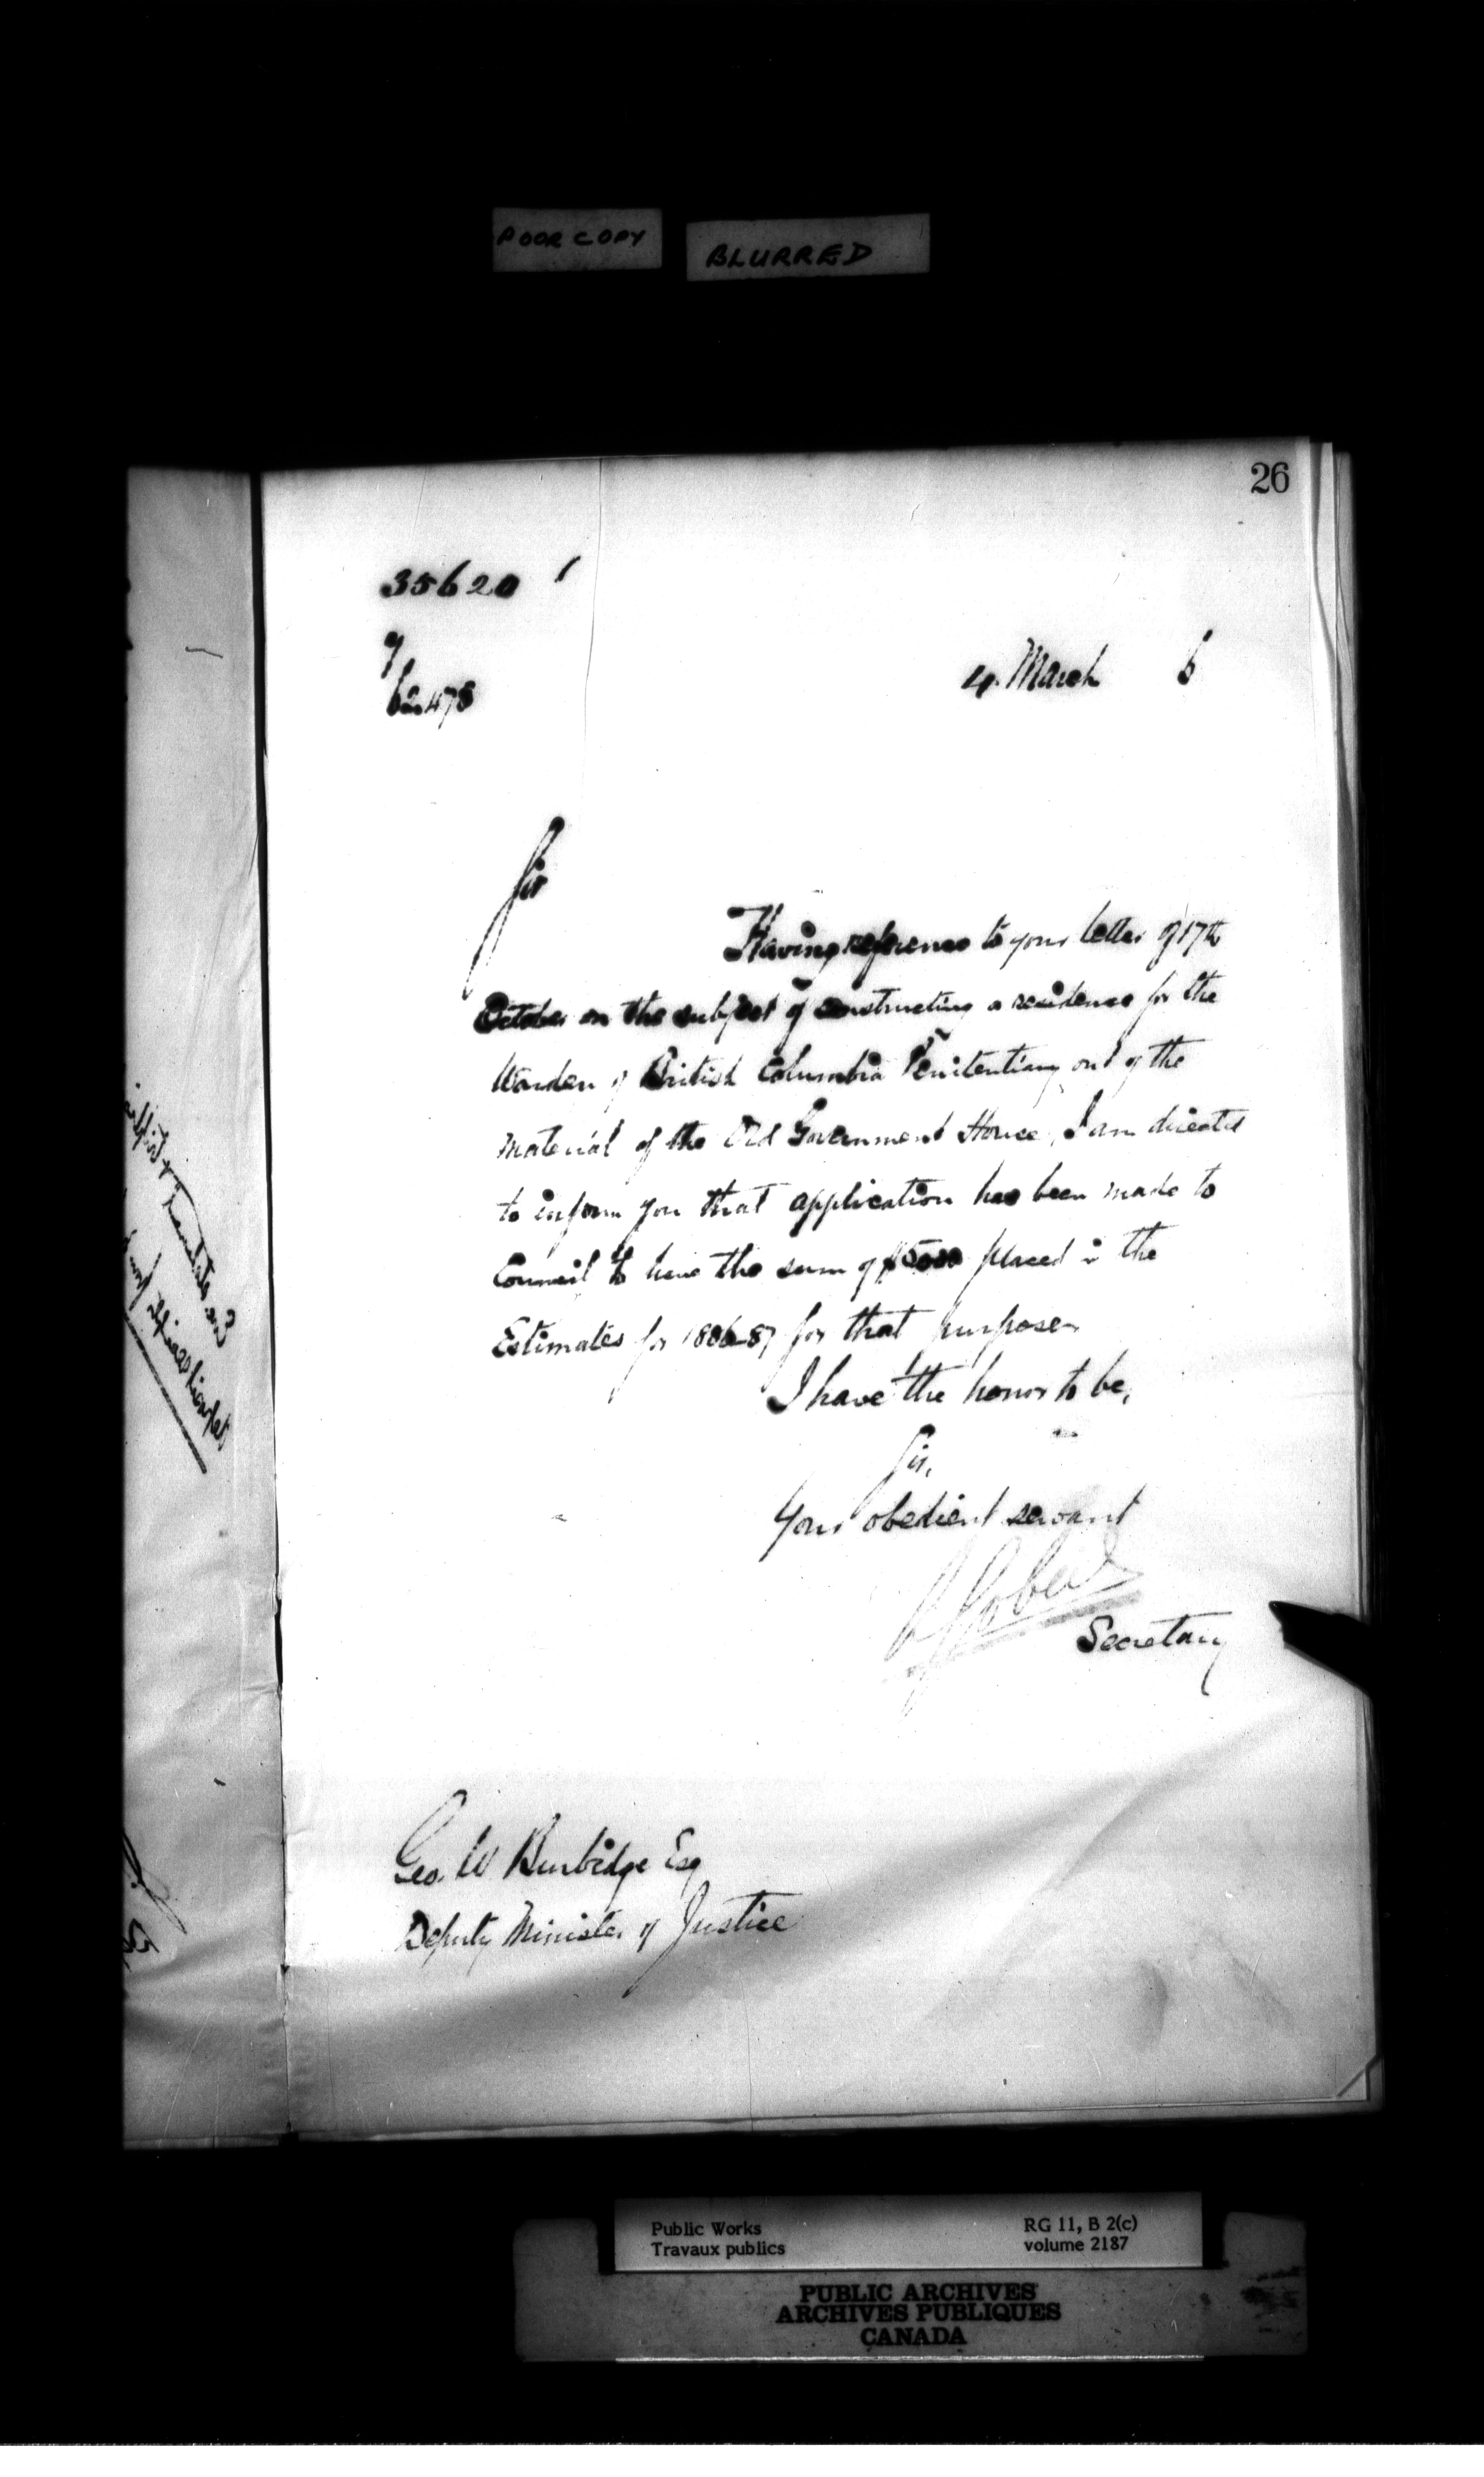 POOR COPY
BLURRED
26
35620
62478
4 March 6
Sir
Having reference to your letter of 17th
October on the subject of constructing a residence for the
Warden of British Columbia Penitentiary out of the
material of the Old Government House, I am directed
to inform you that application has been made to
Council to have the sum of $5000 placed in the
Estimates for 1886-87 for that purpose
I have the honor to be,
Sir,
Your obedient servant
Gobeil
Secretary
Geo. W Burbidge Esq
Deputy Minister of Justice
Public Works
Travaux publics
RG 11, B 2(c)
volume 2187
PUBLIC ARCHIVES
ARCHIVES PUBLIQUES
CANADA